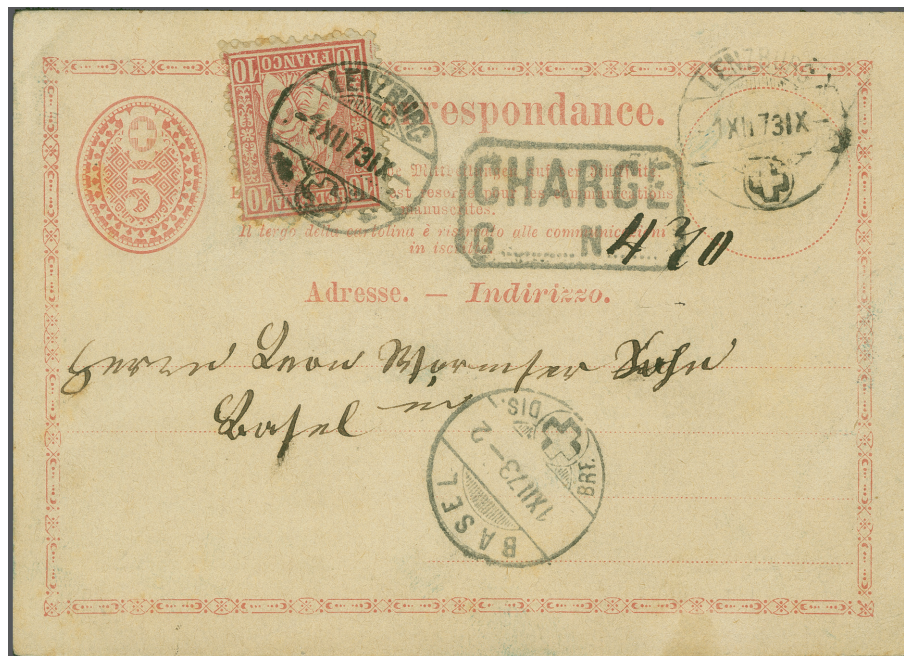 respondance.
10 FRANCO 10
LENZBURG
-1 XII 73 IX
LENZBURG
-1 XII 73 IX
5
CHARGÉ
G N 470
est réservé pour les communications
manuscrites.
Il tergo della cartolina è riservato alle comunicazioni
in iscritto.
Adresse. — Indirizzo.
Herrn Leon Wormser Sohn
in
Basel
BASEL
1 XII 73 – 2
BRF. DIS.